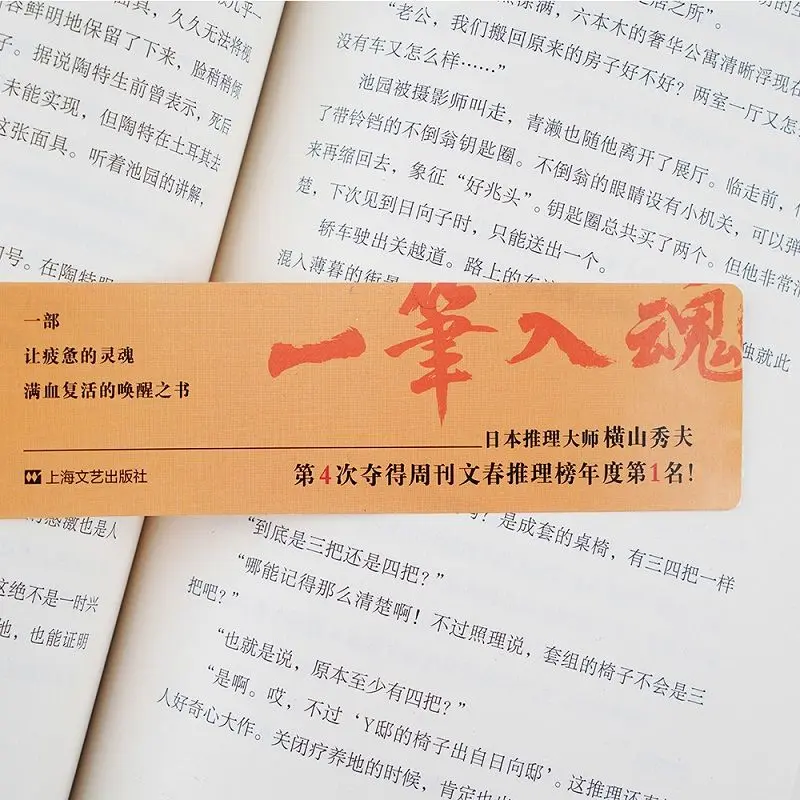 谷鲜明地保留了下来，脸稍稍倾
子。据说陶特生前曾表示，死后
未能实现，但陶特在土耳其去
这张面具。听着池园的讲解，
句号。在陶特眼
“老公，我们搬回原来的房子好不好？两室一厅又怎
没有车又怎么样……”
池园被摄影师叫走，青濑也随他离开了展厅。临走前，
了带铃铛的不倒翁钥匙圈。不倒翁的眼睛设有小机关，可以弹
来再缩回去，象征“好兆头”。钥匙圈总共买了两个。但他非常
楚，下次见到日向子时，只能送出一个。
轿车驶出关越道。路上的车
混入薄暮的街
独就此
一部
让疲惫的灵魂
满血复活的唤醒之书
一筆入魂
日本推理大师 横山秀夫
上海文艺出版社
第4次夺得周刊文春推理榜年度第1名！
感激也是人
这绝不是一时兴
地，也能证明
是成套的桌椅，有三四把一样
“到底是三把还是四把？”
“哪能记得那么清楚啊！不过照理说，套组的椅子不会是三
把吧？”
“也就是说，原本至少有四把？”
“是啊。哎，不过‘Y邸的椅子出自日向邸’。这推理还
人好奇心大作。关闭疗养地的时候，肯定也